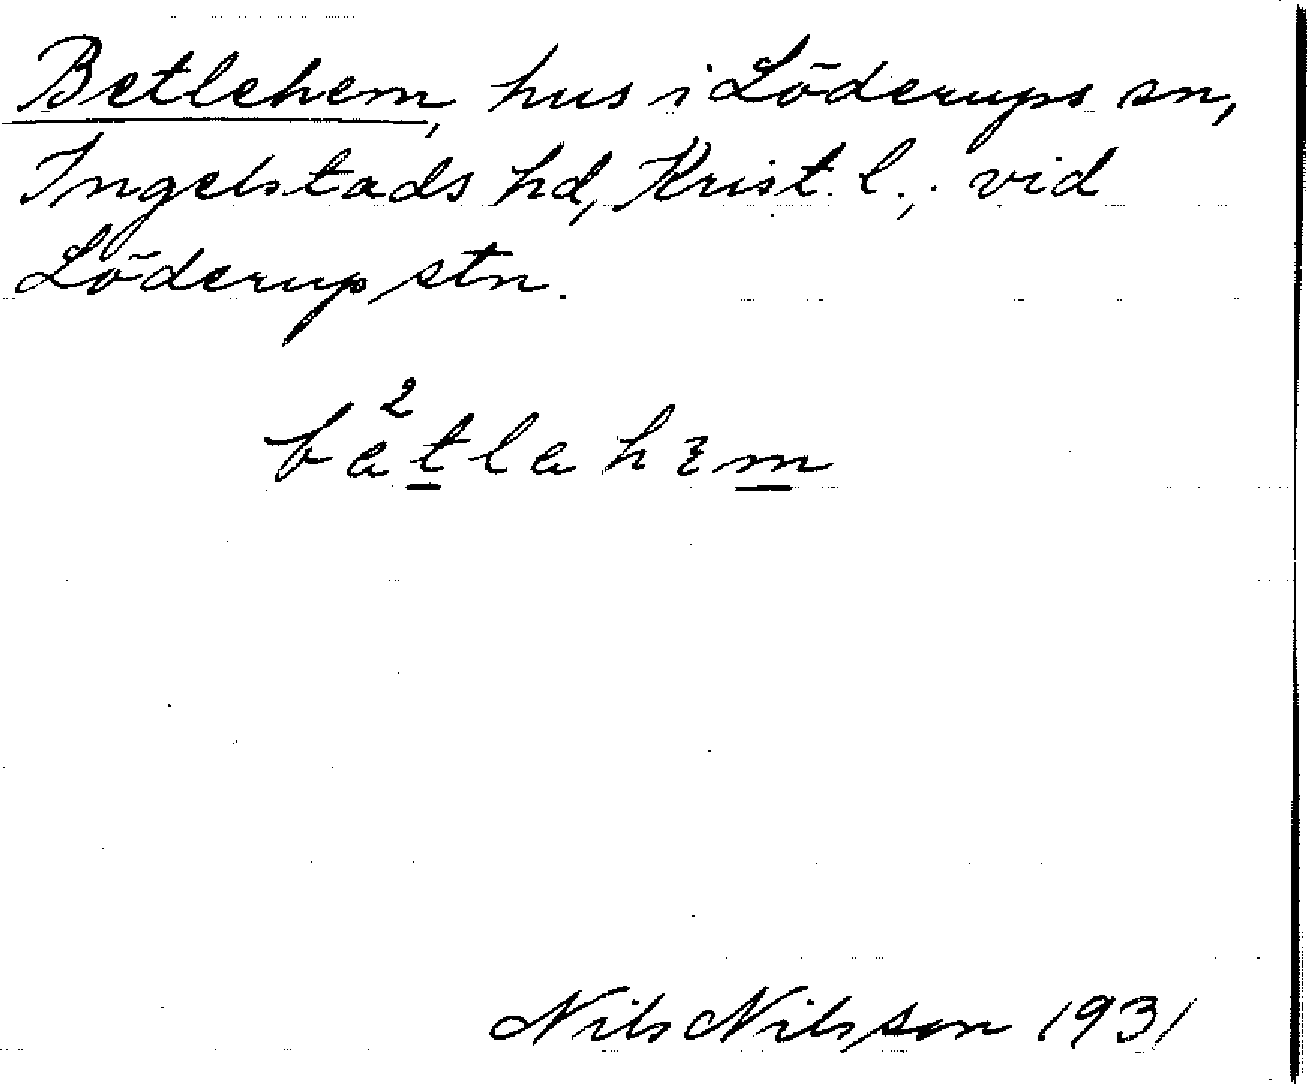 Betlehem, hus i Löderups sn,
Ingelstads hd, Krist. l., vid
Löderup stn.
Nils Nilsson 1931